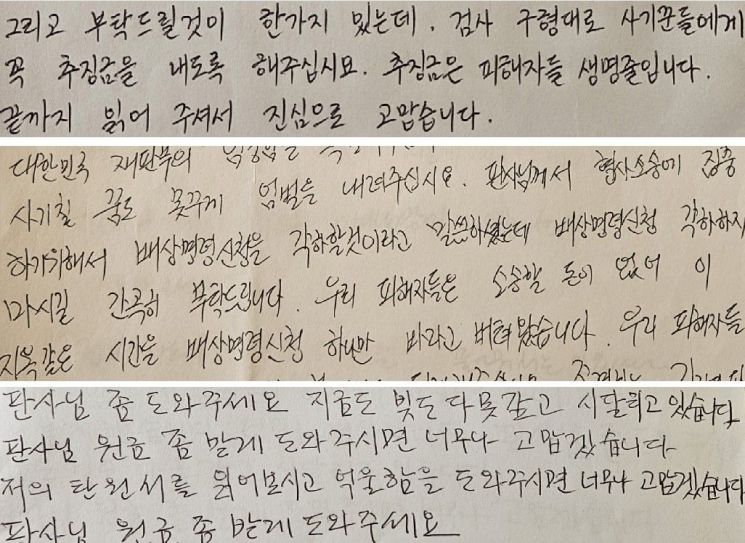 그리고 부탁드릴것이 한가지 있는데. 검사 구형대로 사기꾼들에게
꼭 추징금을 내도록 해주십시요. 추징금은 피해자들 생명줄입니다.
끝까지 읽어 주셔서 진심으로 고맙습니다.
대한민국 재판부의
사기칠 꿈도 못꾸게 엄벌을 내려주십시요. 판사님께서 형사소송에 집중
하기위해서 배상명령신청을 각하할것이라고 말씀하셨는데 배상명령신청 각하하지
마시길 간곡히 부탁드립니다. 우리 피해자들은 소송할 돈이 없어 이
지옥같은 시간을 배상명령신청 하나만 바라고 버텨왔습니다. 우리 피해자들
판사님 좀 도와주세요 지금도 빚도 다 못갚고 시달리고 있습니다
판사님 원금 좀 받게 도와주시면 너무나 고맙겠습니다
저의 탄원서를 읽어보시고 억울함을 도와주시면 너무나 고맙겠습니다
판사님 원금 좀 받게 도와주세요